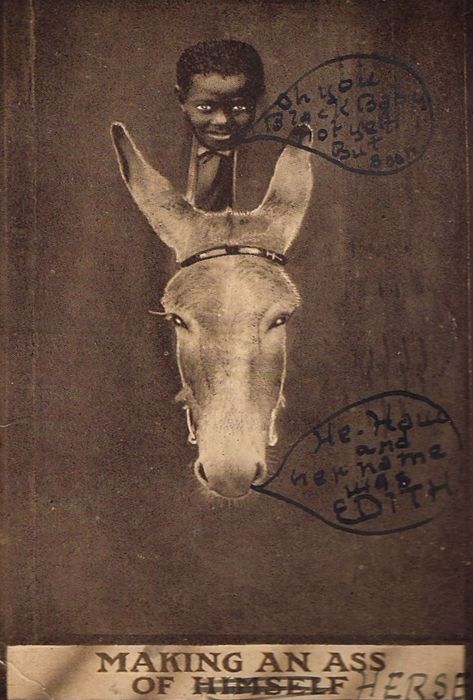 Oh you
Black Baby
Not yet
But
soon
He-Haw
and
her name
was
EDITH
MAKING AN ASS
OF HIMSELF HERSE